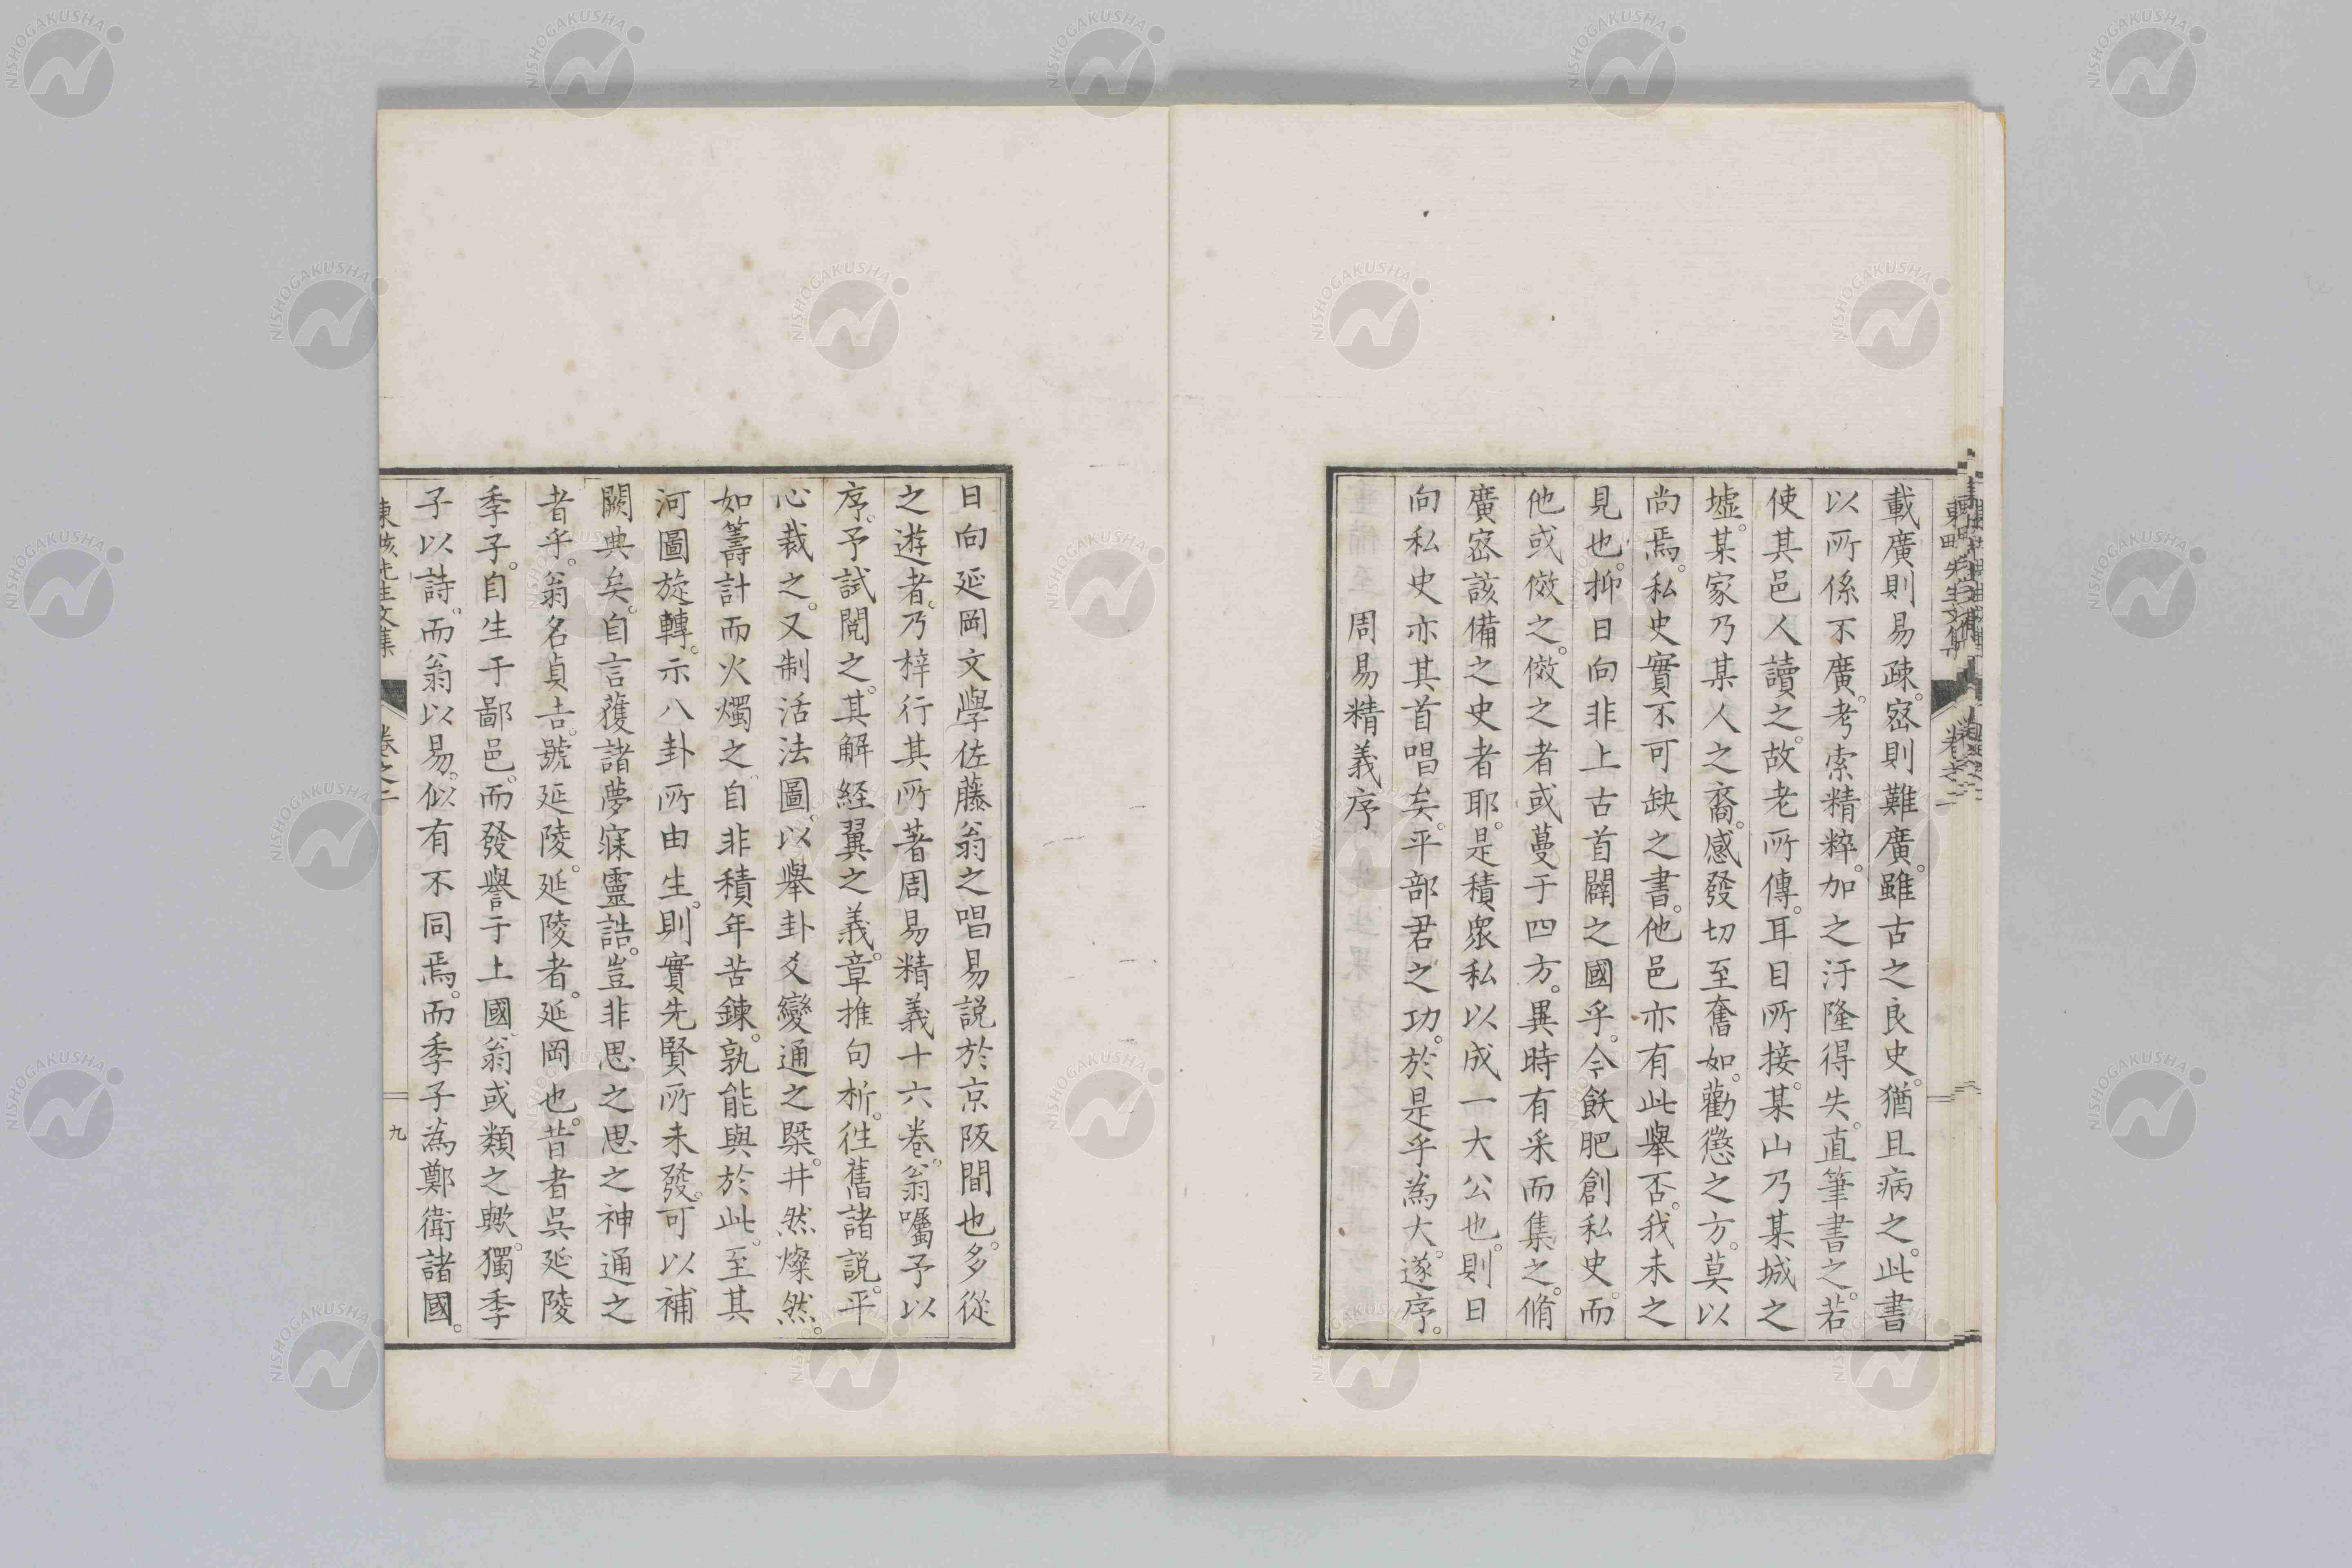 載廣則易疎。密則難廣。雖古之良史。猶且病之。此書
以所係不廣。考索精粹。加之汙隆得失。直筆書之。若
使其邑人讀之。故老所傳。耳目所接。某山乃某城之
墟。某家乃某人之裔。感發切至奮如。勸懲之方。莫以
尚焉。私史實不可缺之書。他邑亦有此舉否。我未之
見也。抑日向非上古首闢之國乎。今飫肥創私史。而
他或傚之。傚之者或蔓于四方。異時有采而集之。脩
廣密該備之史者耶。是積衆私以成一大公也。則日
向私史亦其首唱矣。平部君之功。於是乎為大。遂序。
周易精義序
日向延岡文學佐藤翁之唱易説於京阪間也。多從
之遊者。乃梓行其所著周易精義十六卷。翁囑予以
序。予試閲之。其解経翼之義。章推句析。徃舊諸説。平
心裁之。又制活法圖。以舉卦爻變通之槩。井然燦然。
如籌計而火燭之。自非積年苦鍊。孰能與於此。至其
河圖旋轉。示八卦所由生。則實先賢所未發。可以補
闕典矣。自言獲諸夢寐靈誥。豈非思之思之神通之
者乎。翁名貞吉。號延陵。延陵者。延岡也。昔者呉延陵
季子。自生于鄙邑。而發譽于上國。翁或類之歟。獨季
子以詩。而翁以易。似有不同焉。而季子為鄭衛諸國。
卷之二
九
NISHOGAKUSHA